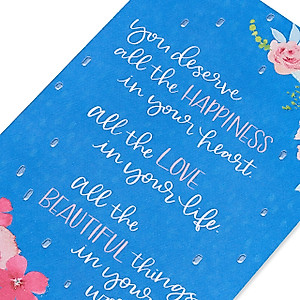 you deserve
all the HAPPINESS
in your heart,
all the LOVE
in your life,
all the
BEAUTIFUL things
in your